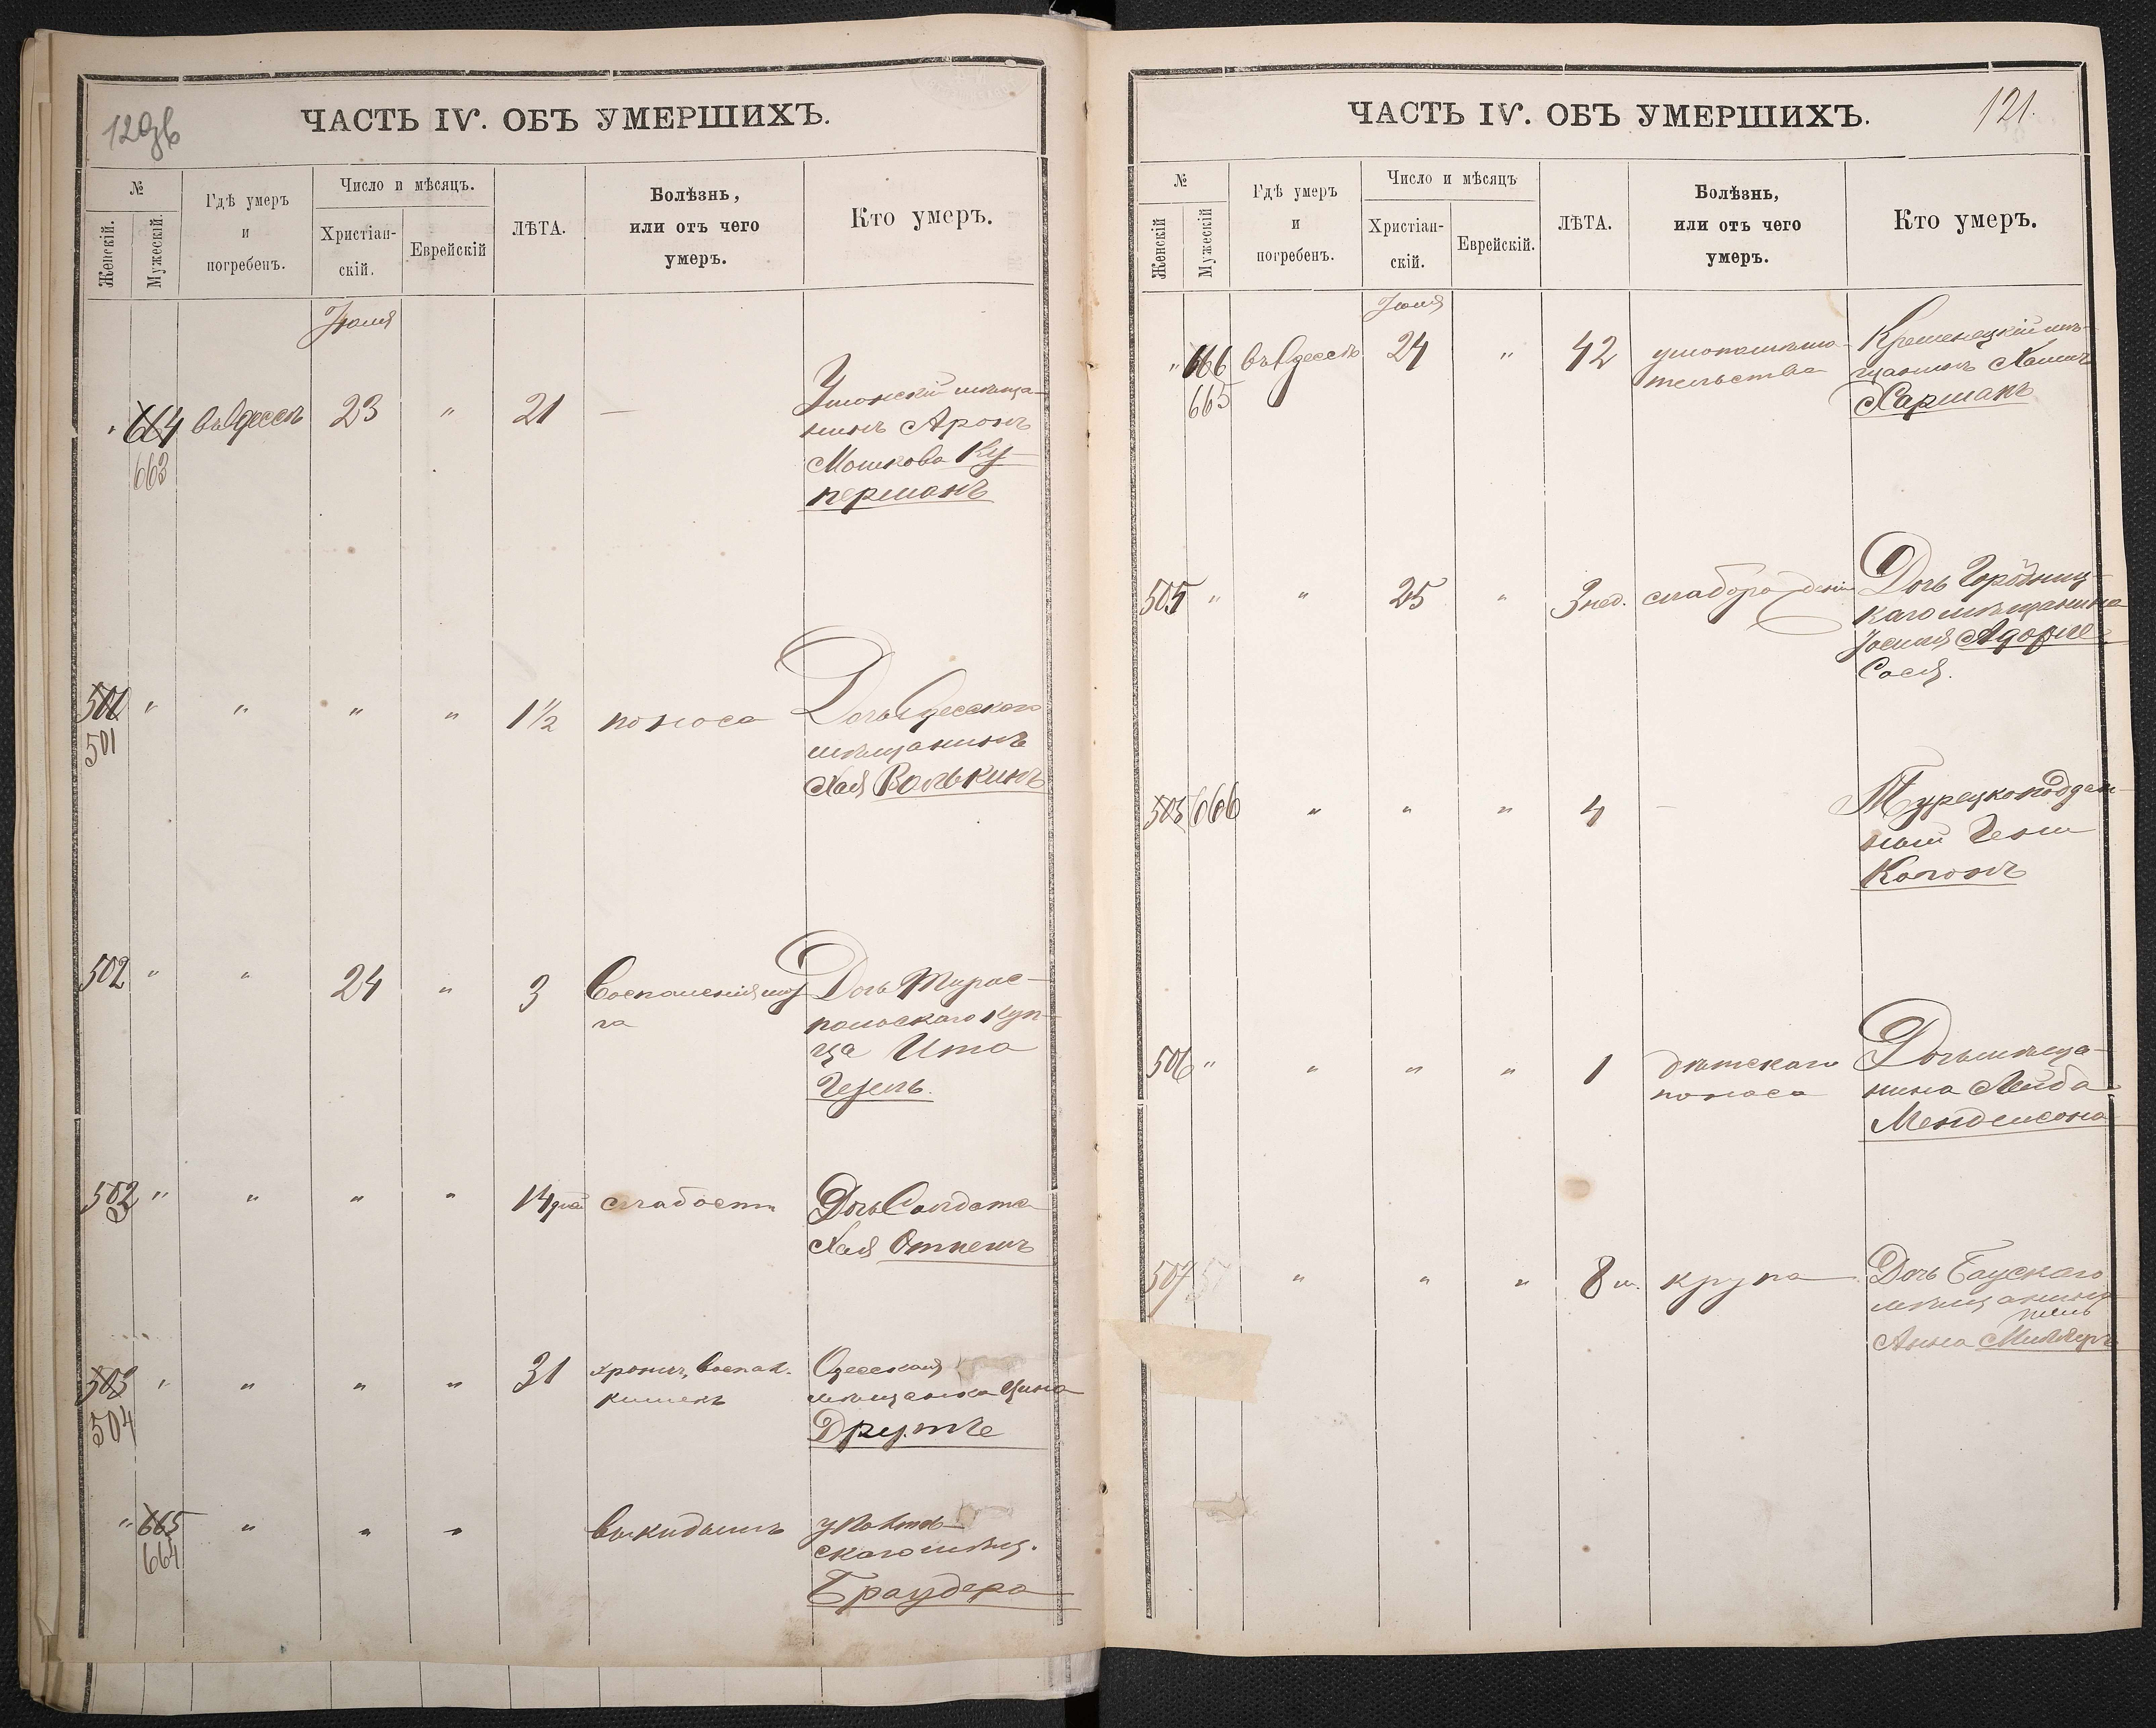 120об
ЧАСТЬ IV. ОБЪ УМЕРШИХЪ.
№
Женскій.
Мужескій.
Гдѣ умеръ
и
погребенъ.
Число и мѣсяцъ.
Христіан-
скій.
Еврейскій
ЛѢТА.
Болѣзнь,
или отъ чего
умеръ.
Кто умеръ.
Іюля
" 664 въ Одессѣ 23 " 21 — Уманскій мѣща-
663
нинъ Аронъ
Мошкова Ку-
перманъ
500 " " " " 1½ поноса Дочь Одесскаго
501
мѣщанинъ
Хая Волькинъ
502 " " 24 " 3 Воспаленія моз- Дочь Тирас-
га
польскаго куп-
ца Ита
Гезель.
503 " " " " 14 дней слабости Дочь Солдата
Хая
503 " " " " 31 хронич. воспал. Одесская
504
кишекъ
мѣщанка Цина
" 665 " " " выкидышъ
664
скаго мѣщ.
Браудера
ЧАСТЬ IV. ОБЪ УМЕРШИХЪ.
121.
№
Женскій
Мужескій
Гдѣ умеръ
и
погребенъ.
Число и мѣсяцъ
Христіан-
скій.
Еврейскій.
ЛѢТА.
Болѣзнь,
или отъ чего
умеръ.
Кто умеръ.
Іюля
" 666 въ Одессѣ 24 " 42 умопомѣша- Кременецкій мѣ-
665
тельства
щанинъ Хаимъ
Харманъ
505 " " 25 " 3 нед. слаборожденія Дочь Городниц-
каго мѣщанина
Іосифа
Сося.
505 666 " " " 4 — Турецкоподдан-
ный
Коганъ
506 " " " " 1 дѣтскаго Дочь мѣща-
поноса
нина Лейба
Мендельсона
507 " " " 8 м. крупа Дочь Баускаго
мѣщанина
Анна